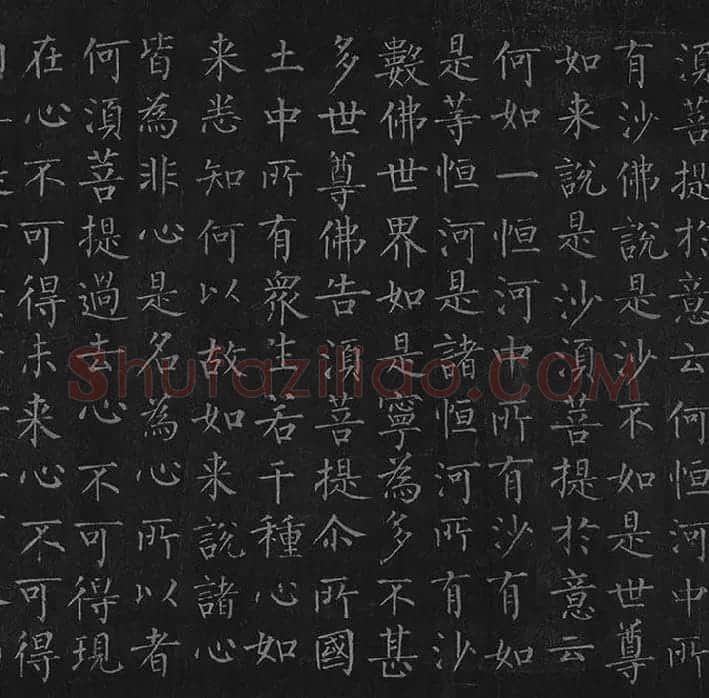 湏菩提於意云何恒河中所
有沙佛說是沙不如是世尊
如来說是沙湏菩提於意云
何如一恒河中所有沙有如
是等恒河是諸恒河所有沙
數佛世界如是寧為多不甚
多世尊佛告湏菩提尒所國
土中所有衆生若干種心如
来悉知何以故如来說諸心
皆為非心是名為心所以者
何湏菩提過去心不可得現
在心不可得未来心不可得
Shufaziliao.COM